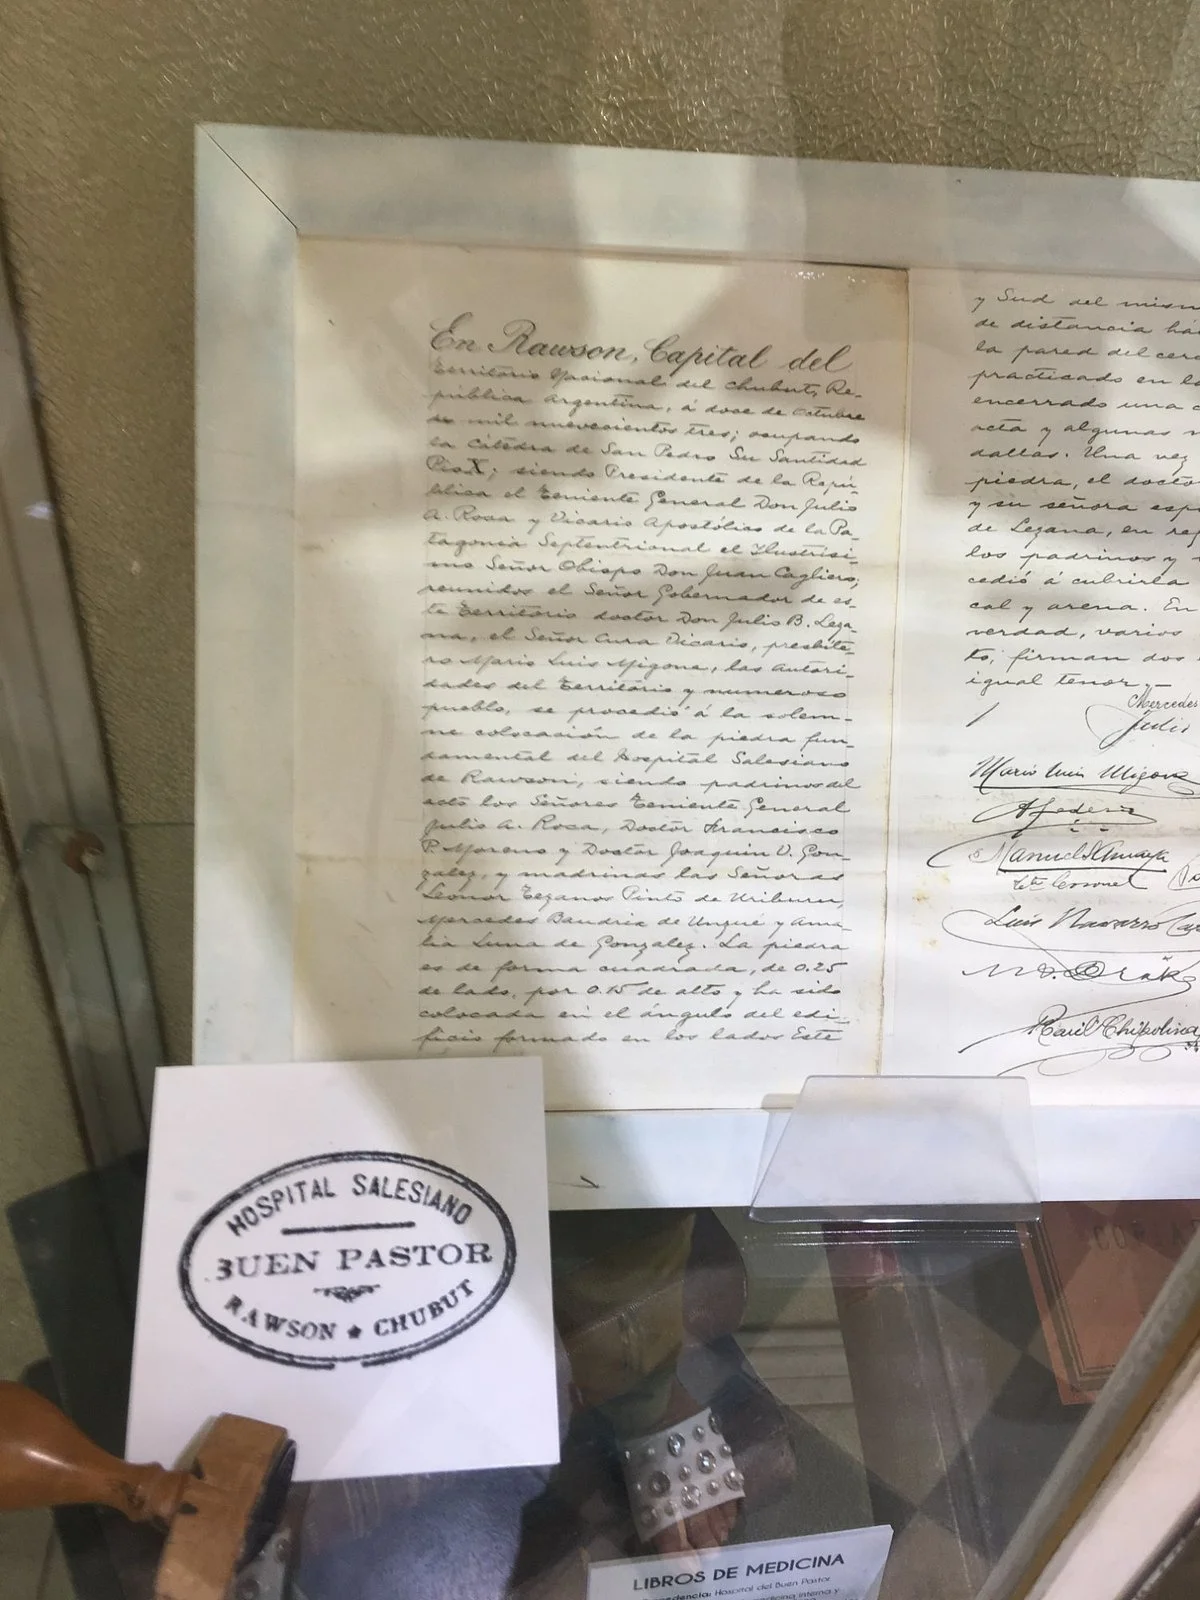 En Rawson, Capital del
Territorio Nacional del Chubut, Re-
pública Argentina, á doce de Octubre
de mil nuevecientos tres; ocupando
la Cátedra de San Pedro Su Santidad
Pio X; siendo Presidente de la Repú-
blica el Teniente General Don Julio
A. Roca y Vicario Apostólico de la Pa-
tagonia Septentrional el Ilustrísi-
mo Señor Obispo Don Juan Cagliero;
reunidos el Señor Gobernador de es-
te Territorio doctor Don Julio B. Leza-
na, el Señor Cura Vicario, presbíte-
ro Mario Luis Migone, las autori-
dades del Territorio y numeroso
pueblo, se procedió á la solem-
ne colocación de la piedra fun-
damental del Hospital Salesiano
de Rawson, siendo padrinos del
acto los Señores Teniente General
Julio A. Roca, Doctor Francisco
P. Moreno y Doctor Joaquin V. Gon-
zalez, y madrinas las Señoras
Leonor Tezanos Pinto de Uriburu,
Mercedes Baudrix de Unzué y Ama-
lia Luna de Gonzalez. La piedra
es de forma cuadrada, de 0.25
de lado, por 0.15 de alto y ha sido
colocada en el ángulo del edi-
ficio formado en los lados Este
y Sud del mism
de distancia há
la pared del cer
practicado en l
encerrado una c
acta y algunas
dallas. Una vez
piedra, el docto
y su señora esp
de Lezana, en re
los padrinos y
cedió á cubrirla
cal y arena. En
verdad, varios
to, firman dos
igual tenor.
Mercedes
Julio
Mario Luis Migone
Manuel
Tte Coronel
Luis Navarro
Drake
Raúl Chipolina
HOSPITAL SALESIANO
BUEN PASTOR
RAWSON ★ CHUBUT
LIBROS DE MEDICINA
cedencia: Hospital del Buen Pastor
edicina interna y